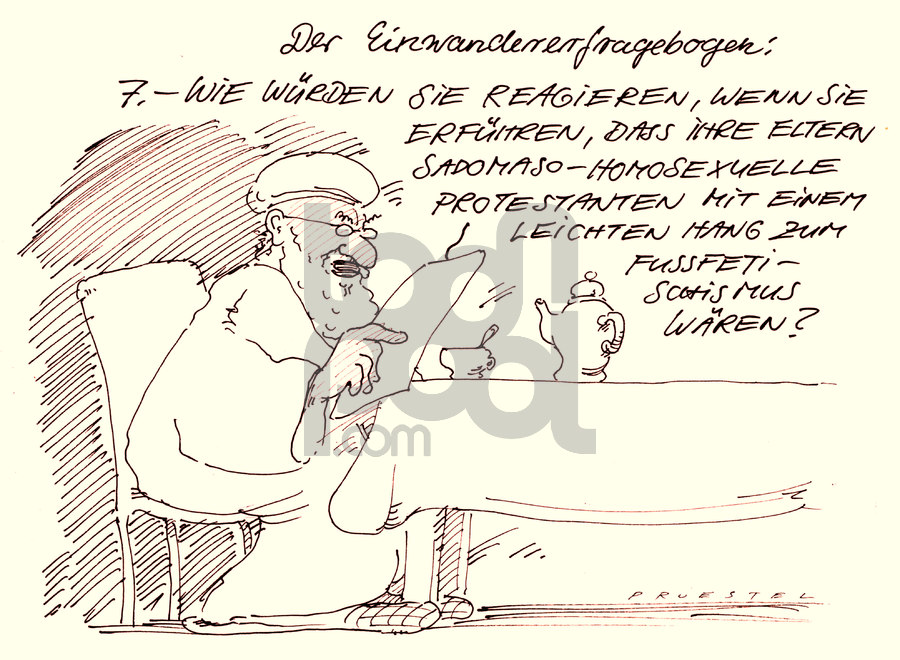 Der Einwandererfragebogen:
7.–WIE WÜRDEN SIE REAGIEREN, WENN SIE
ERFÜHREN, DASS IHRE ELTERN
SADOMASO–HOMOSEXUELLE
PROTESTANTEN MIT EINEM
LEICHTEN HANG ZUM
FUSSFETI–
SCHISMUS
WÄREN?
toonpool
.com
PRUESTEL